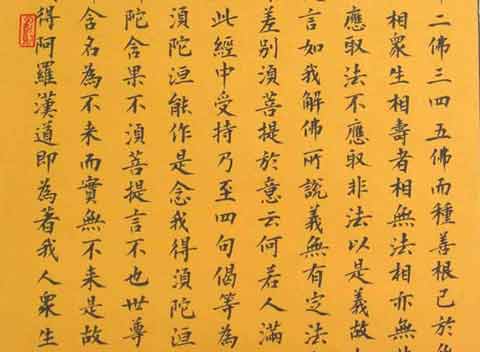 二佛三四五佛而種善根已於
相眾生相壽者相無法相亦無
應取法不應取非法以是義故
言如我解佛所說義無有定法
差別須菩提於意云何若人滿
此經中受持乃至四句偈等為
須陀洹能作是念我得須陀洹
陀含果不須菩提言不也世尊
含名為不来而實無不来是故
得阿羅漢道即為著我人眾生